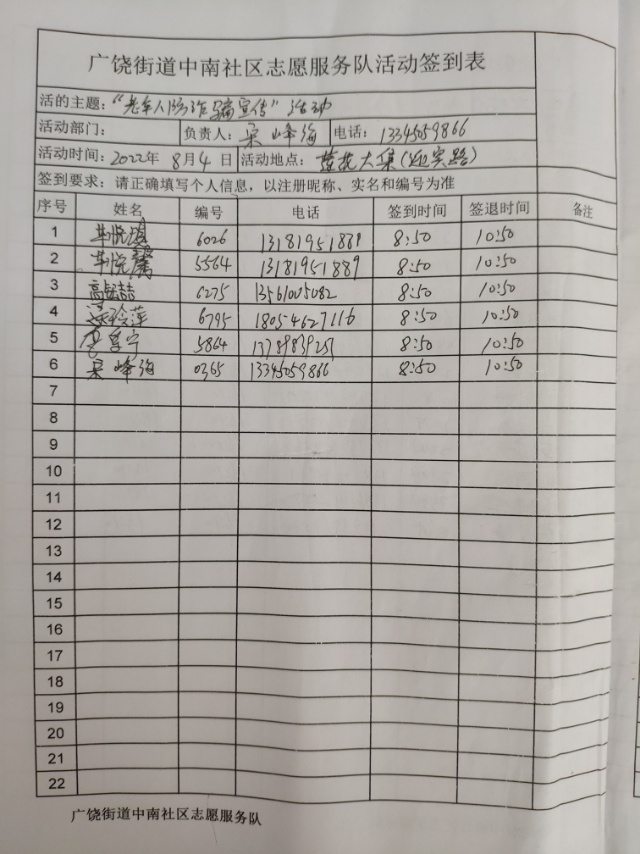 广饶街道中南社区志愿服务队活动签到表
活的主题：“老年人防诈骗宣传”活动
活动部门： 负责人：宋峰海 电话：13345059866
活动时间：2022年8月4日 活动地点：大集（迎宾路）
签到要求：请正确填写个人信息，以注册昵称、实名和编号为准
序号 姓名 编号 电话 签到时间 签退时间 备注
1 6026 13181951889 8:50 10:50
2 5564 13181951889 8:50 10:50
3 6275 13561005082 8:50 10:50
4 6795 18054627116 8:50 10:50
5 5864 8:50 10:50
6 宋峰海 0365 13345059866 8:50 10:50
7
8
9
10
11
12
13
14
15
16
17
18
19
20
21
22
广饶街道中南社区志愿服务队